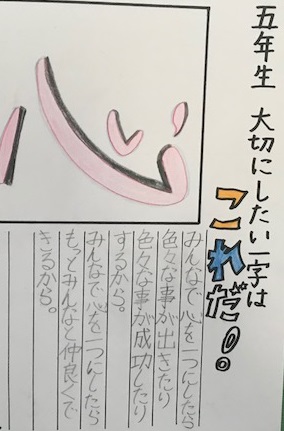 五年生 大切にしたい一字は
これだ!!
心
みんなで心を一つにしたら
色々な事が出きたり
色々な事が成功したり
するから。
みんなで心を一つにしたら
もってみんなと仲良くで
きるから。